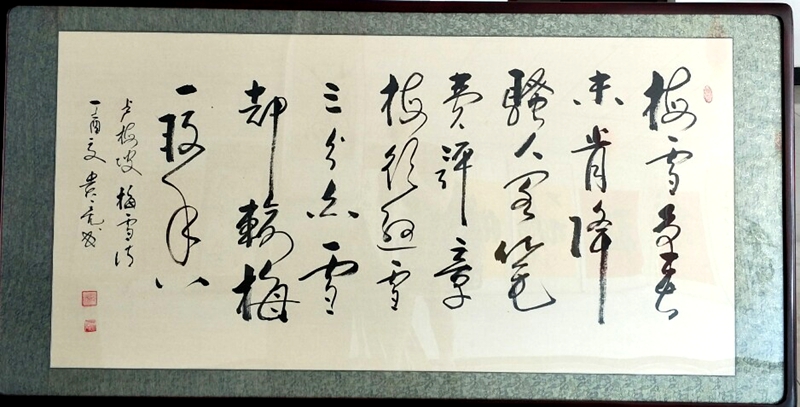 梅雪争春
未肯降
騷人阁笔
费評章
梅须逊雪
三分白雪
却輸梅
一段香
卢梅坡 梅雪诗
丁酉夏 贵亮书